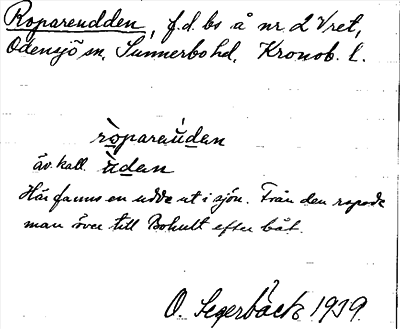 Ropareudden, f.d. bs å nr 2 Vret,
Odensjö sn, Sunnerbo hd, Kronob. l.
ròparaúdan
äv. kall. ùdan
Här fanns en udde ut i sjön. Från den ropade
man över till Bohult efter båt.
O. Segerbäck 1939.